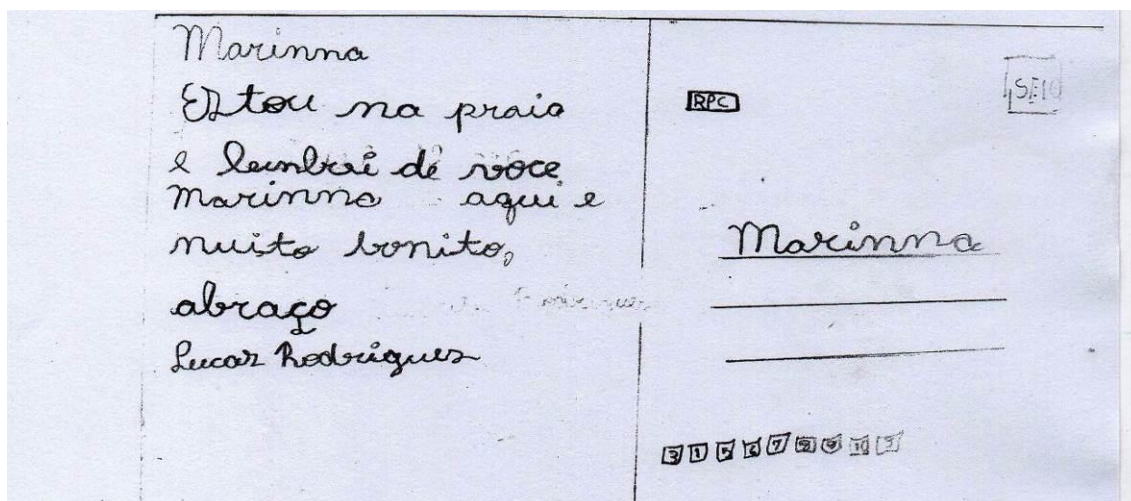 Marinna
Estou na praia
e lembrei de voce
Marinna aqui e
muito bonito,
abraço
Lucas Rodrigues
RPC
Marinna